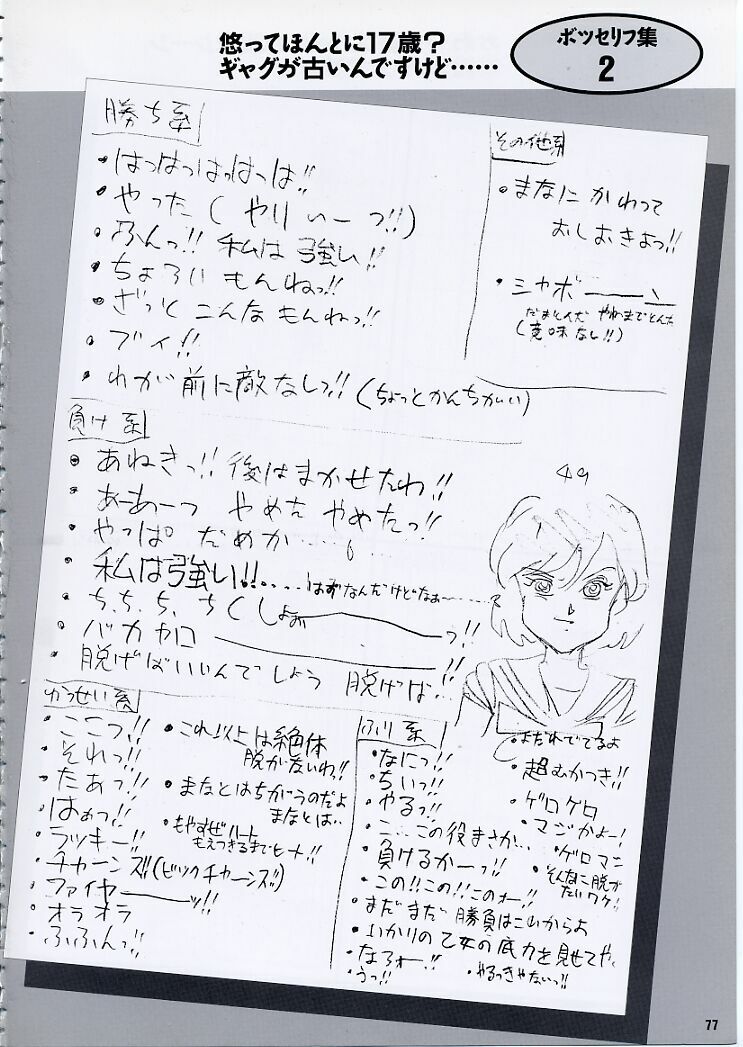 悠ってほんとに17歳？
ギャグが古いんですけど……
ボツセリフ集
2
勝ち系
・はっはっはっはっは!!
・やった(やりぃーっ!!)
・ふんっ!! 私は強い!!
・ちょろいもんねっ!!
・ざっとこんなもんねっ!!
・ブイ!!
・わが前に敵なしっ!!(ちょっとかんちがい)
その他系
・まなにかわって
おしおきよっ!!
・シャボーーン
(意味なし!!)
負け系
・あねきっ!! 後はまかせたわ!!
・あーあーっ やめた やめたっ!!
・やっぱ だめか……
・私は強い!!‥‥はずなんだけどなぁ〜
・ち、ち、ち、ちくしょおぉーーっ!!
・バカヤロ
・脱げばいいんでしょう 脱げば‥!!
49
かっせい系
・ここっ!!
・それっ!!
・たぁっ!!
・はぁっ!!
・ラッキー!!
・チャーンズ(ビックチャーンズ)
・ファイヤーーッ!!
・オラオラ
・ふふんっ!!
・これ以上は絶体
脱がないわ!!
・まなとはちがうのだよ
まなとは‥
・もやすぜハート
もえつきるまでヒート!!
ふり系
・なにっ!!
・ちいっ!!
・やるっ!!
・こ…この役まさか…
・負けるかーっ!!
・この!!この!!このォー!!
・まだまだ勝負はこれからよ
・いかりの乙女の底力を見せてや
・なろォー!!
・うっ!!
・やるっきゃないっ!!
・まだれでてるよ
・超むかつき!!
・ゲロゲロ
・マジかよー!
・ゲロマニ
・そんなに脱が
たいワケ!
77